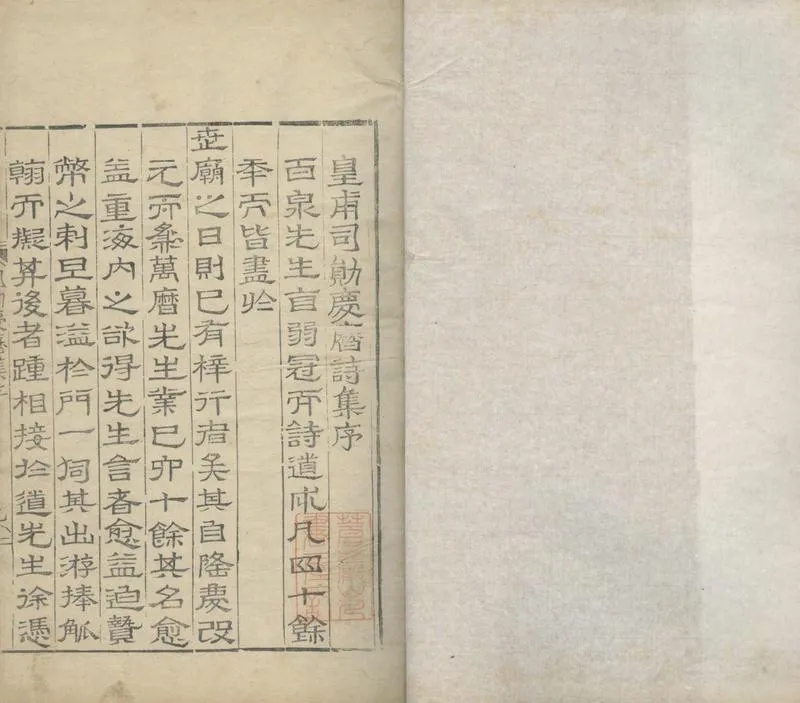 皇甫司勛慶曆詩集序
百泉先生自弱冠而詩道成凡四十餘
年而皆盡於
世廟之日則已有梓行者矣其自隆慶改
元而為萬曆先生業已卯十餘其名愈
益重海內之欲得先生言者愈益迫贄
幣之刺旦暮溢於門一伺其出游捧觚
翰而擬其後者踵相接於道先生徐憑